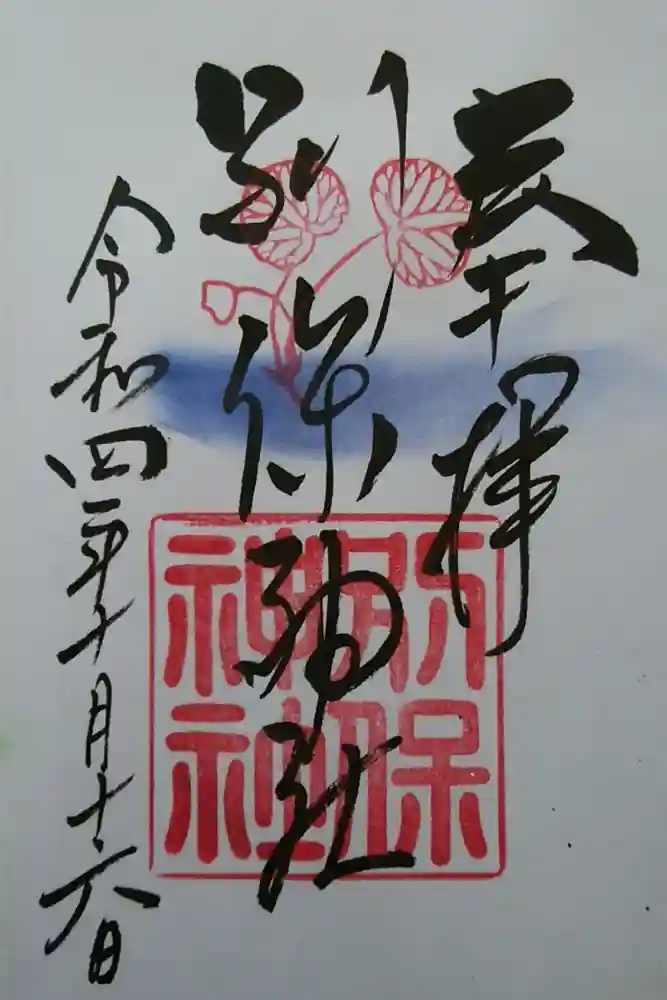 奉拝
別保神社
令和四年十月十六日
別保
神社